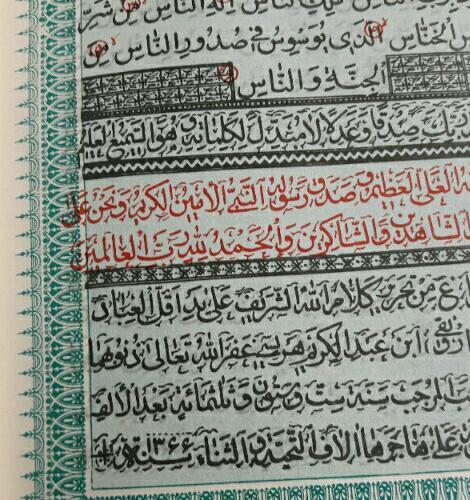 الناس من شر
الخناس الذي يوسوس في صدور الناس من
الجنة والناس
صدقا وعدلا لا مبدل لكلماته وهو السميع العليم
العلي العظيم وصدق رسوله النبي الأمين الكريم ونحن على
الشاهدين والشاكرين والحمد لله رب العالمين
من تحرير كلام الله الشريف على يد اقل العباد
ابن عبد الكريم هريسي غفر الله تعالى ذنوبهما
رجب سنة ست وستون وثلثمائة بعد الألف
على هاجرها الاف التحية والثناء سنة ١٣٦٦